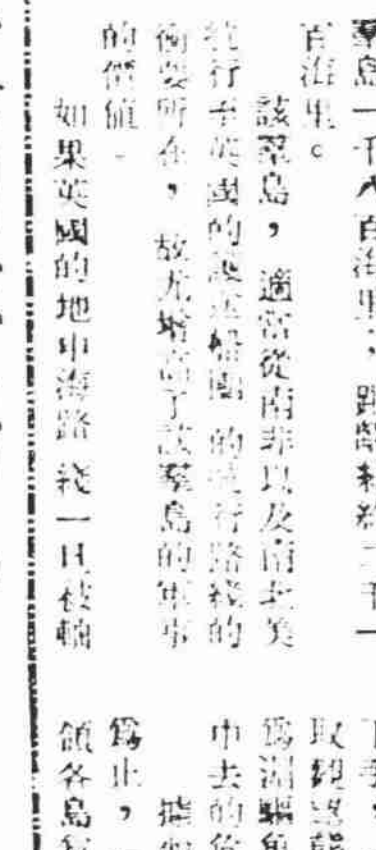 羣島一千八百海里，距離紐約二千一
百海里。
該羣島，適當從南非以及南北美
航行至英國的護送船團的航行路綫的
衝要所在，故尤增高了該羣島的軍事
的價值。
如果英國的地中海路綫一旦被軸
取
爲
中去的
據
爲止，
領各島